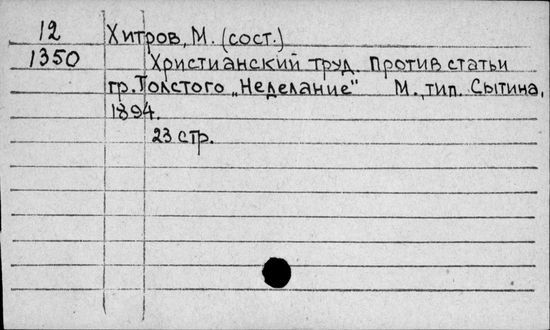 12 Хитров, М. (сост.)
1350 Христианский труд. Против статьи
гр. Толстого „Неделание" М., тип. Сытина,
1894.
23 стр.